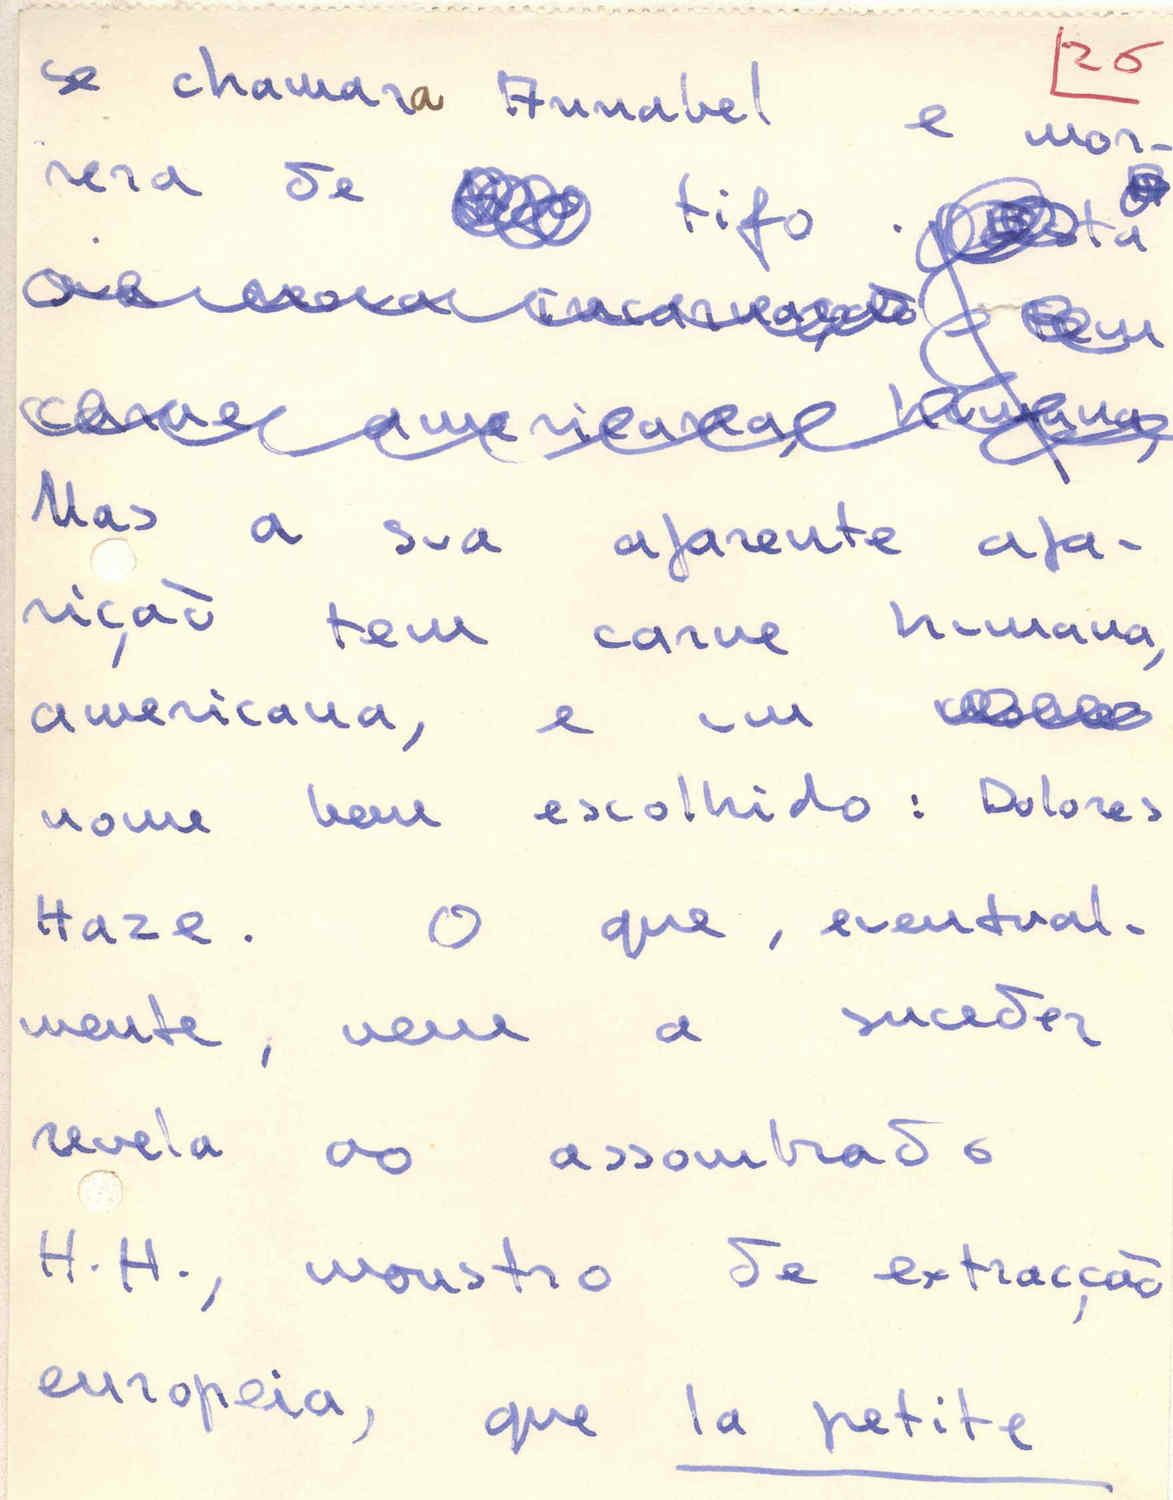 26
se chamara Annabel e mor-
rera de tifo. Esta
nova incarnação tem
carne americana, humana,
Mas a sua aparente apa-
rição tem carne humana,
americana, e um
nome bem escolhido: Dolores
Haze. O que, eventual-
mente, vem a suceder
revela ao assombrado
H.H., monstro de extracção
europeia, que la petite